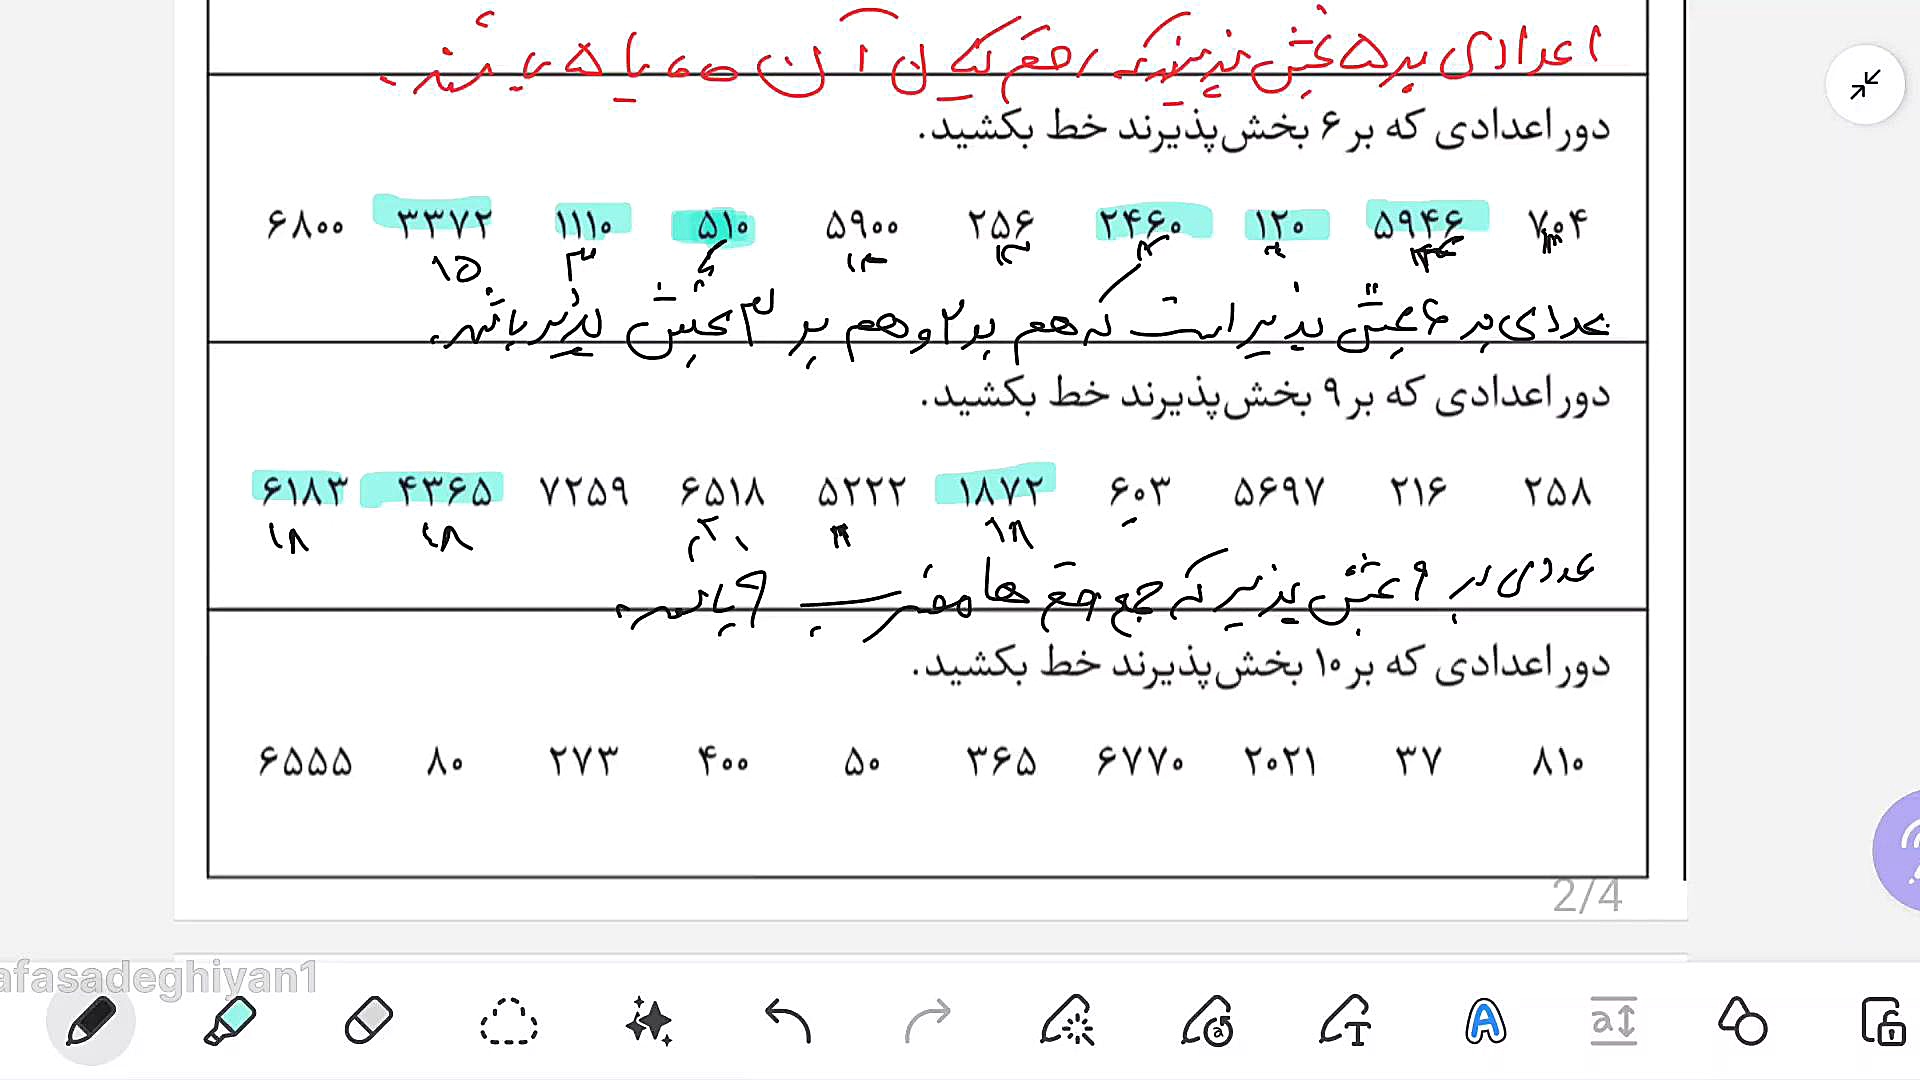 اعدادی بر ۵ بخش پذیرند که رقم یکان آن ها ۰ یا ۵ باشند.
دور اعدادی که بر ۶ بخش‌پذیرند خط بکشید.
۷۰۴ ۵۹۴۶ ۱۲۰ ۲۴۶۰ ۲۵۶ ۵۹۰۰ ۵۱۰ ۱۱۱۰ ۳۳۷۲ ۶۸۰۰
۳ ۱۵
عددی بر ۶ بخش پذیر است که هم بر ۲ و هم بر ۳ بخش پذیر باشد.
دور اعدادی که بر ۹ بخش‌پذیرند خط بکشید.
۲۵۸ ۲۱۶ ۵۶۹۷ ۶۰۳ ۱۸۷۲ ۵۲۲۲ ۶۵۱۸ ۷۲۵۹ ۴۳۶۵ ۶۱۸۳
۱۸ ۱۸ ۱۸
عددی بر ۹ بخش پذیر که جمع رقم ها مضرب ۹ باشد.
دور اعدادی که بر ۱۰ بخش‌پذیرند خط بکشید.
۸۱۰ ۳۷ ۲۰۲۱ ۶۷۷۰ ۳۶۵ ۵۰ ۴۰۰ ۲۷۳ ۸۰ ۶۵۵۵
2/4
afasadeghiyan1